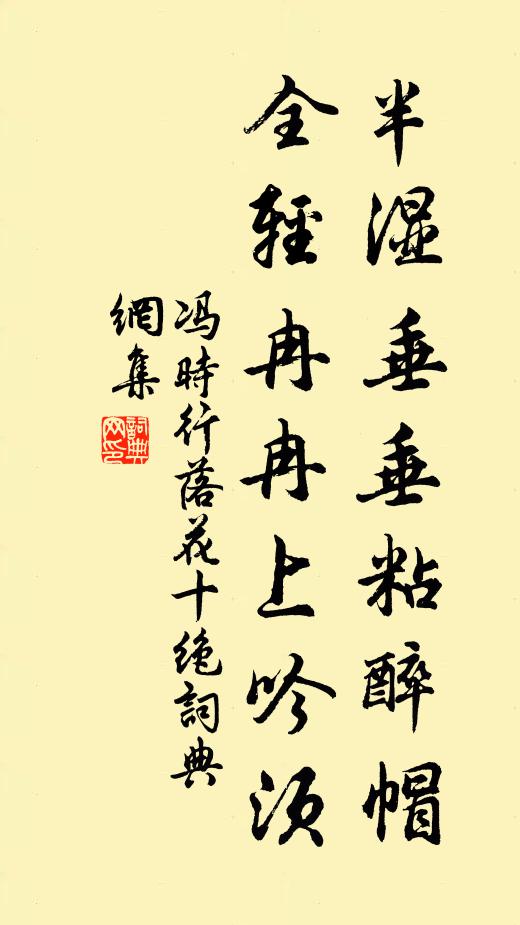 半濕垂垂粘醉帽
全輕冉冉上吟須
冯時行落花十绝詞典
網集
詞典
网印